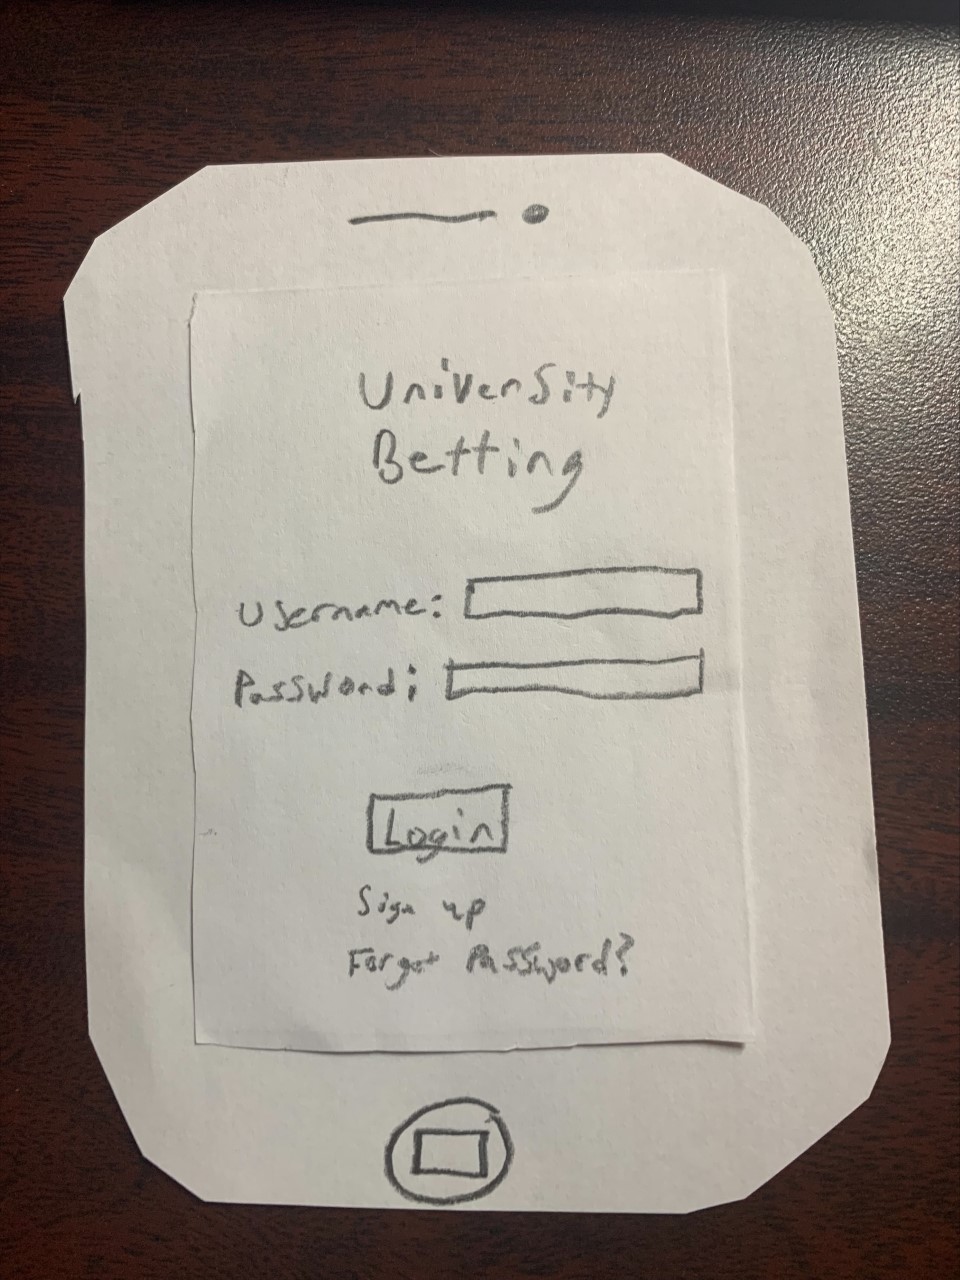 University
Betting
Username:
Password:
Login
Sign up
Forgot Password?